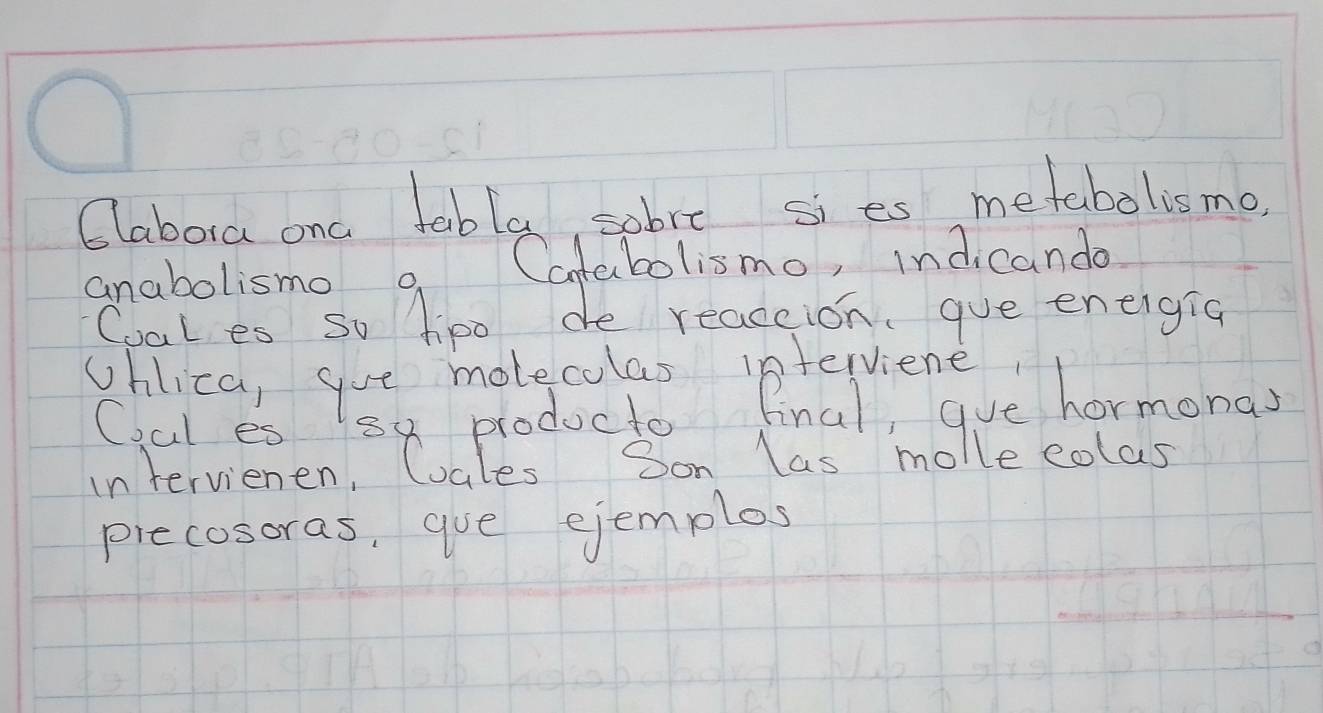 Elabora una tabla sobre si es metabolismo,
anabolismo o Catabolismo, indicando
Cual es su tipo de reaccion. que energia
Utiliza, que moleculas interviene,
Cual es su producto final, que hormonas
intervienen, Cuales Son las molleculas
precusoras, que ejemplos